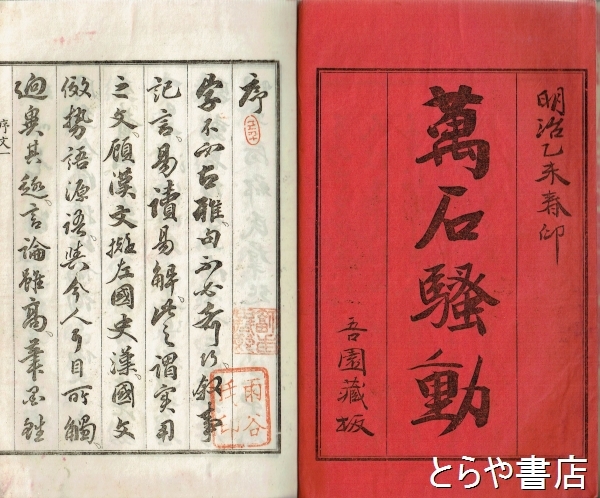 明治乙未春印
萬石騒動
吾園藏板
序
字不必古雅。句不必奇巧。叙事
記言。易讀易解。此之謂實用
之文。顧漢文擬左國史漢。國文
倣勢語源語。與今人耳目所觸
迥異其趣。言論雖高。筆
序文一
雨谷
とらや書店